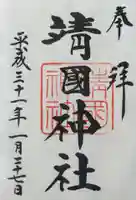 奉拝
靖國神社
平成三十一年一月二十七日
靖國神社